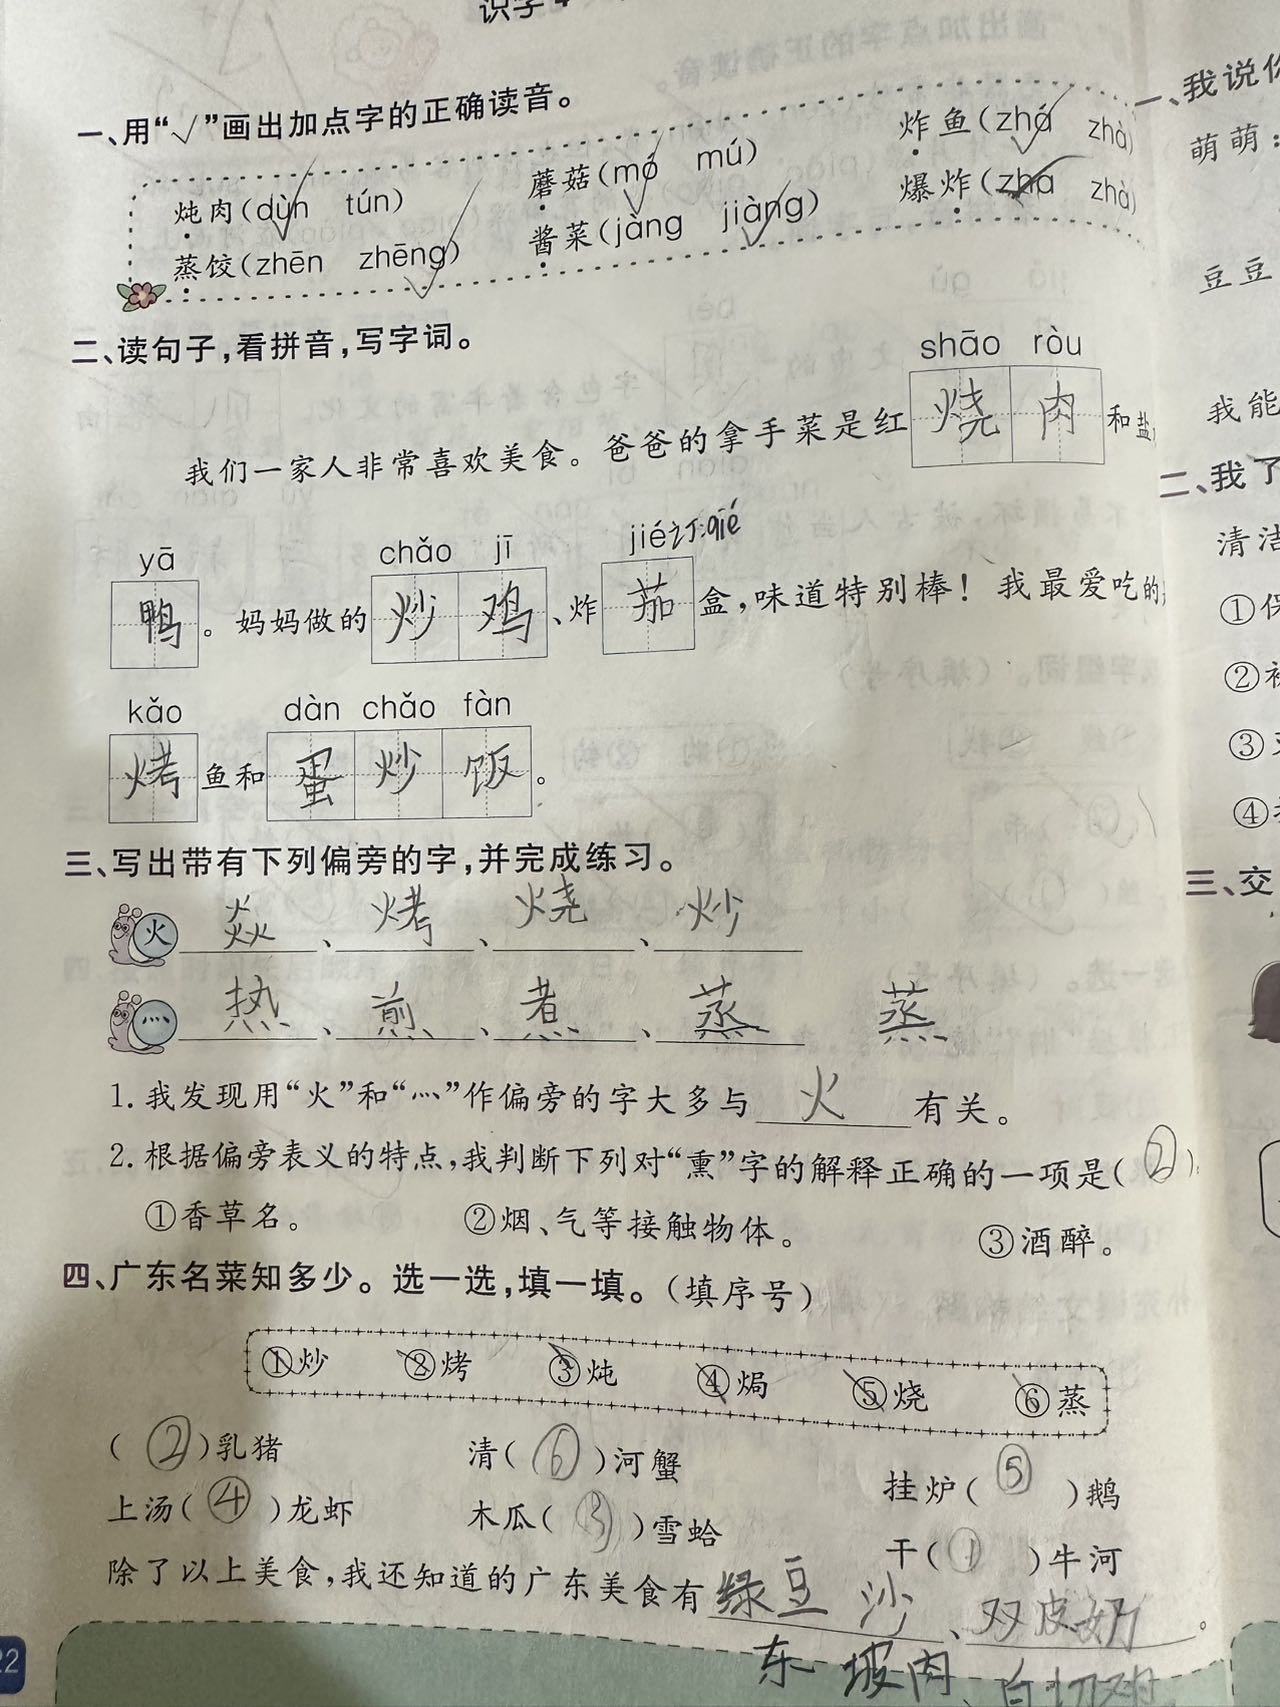 识字4
一、用“√”画出加点字的正确读音。
炖肉(dùn tún) 蘑菇(mó mú) 炸鱼(zhá zhà)
蒸饺(zhēn zhēng) 酱菜(jàng jiàng) 爆炸(zhá zhà)
二、读句子,看拼音,写字词。
shāo ròu
我们一家人非常喜欢美食。爸爸的拿手菜是红烧肉和盐
yā chǎo jī jié 订:qié
鸭。妈妈做的炒鸡、炸茄盒,味道特别棒!我最爱吃的
kǎo dàn chǎo fàn
烤鱼和蛋炒饭。
三、写出带有下列偏旁的字,并完成练习。
火 焱、烤、烧、炒
灬 热、煎、煮、蒸 蒸
1.我发现用“火”和“灬”作偏旁的字大多与火有关。
2.根据偏旁表义的特点,我判断下列对“熏”字的解释正确的一项是(②)
①香草名。 ②烟、气等接触物体。 ③酒醉。
四、广东名菜知多少。选一选,填一填。(填序号)
①炒 ②烤 ③炖 ④焗 ⑤烧 ⑥蒸
(②)乳猪 清(⑥)河蟹 挂炉(⑤)鹅
上汤(④)龙虾 木瓜(③)雪蛤 干(①)牛河
除了以上美食,我还知道的广东美食有绿豆沙、双皮奶。
东坡肉、白切鸡
22
一、我说你
萌萌:
豆豆
我能
二、我了
清洁
①保
②
③
④
三、交